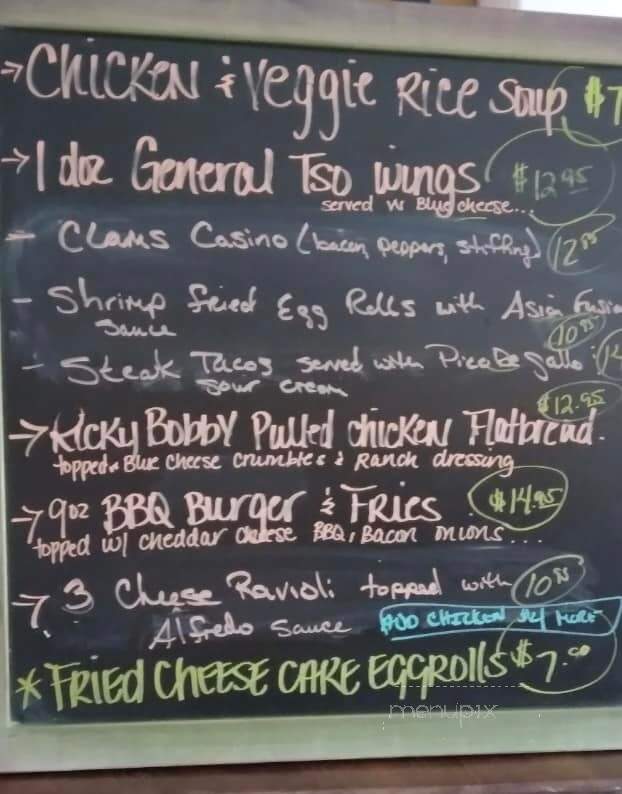 → CHICKEN & Veggie RICE Soup $7
→ 1 doz General Tso wings $12.95
served w Blue cheese...
- Clams Casino (bacon, peppers, stuffing) 12.95
- Shrimp fried Egg Rolls with Asian Fusion
Sauce 10.95
- Steak Tacos served with Pico De gallo
sour cream
$12.95
→ RICKY BOBBY Pulled chicken Flatbread.
topped w Blue cheese crumbles & Ranch dressing
→ 9oz BBQ BURGER & FRIES $14.95
topped w/ cheddar cheese BBQ, Bacon onions...
→ 3 Cheese Ravioli topped with 10.95
Alfredo sauce ADD CHICKEN $4 MORE
* FRIED CHEESE CAKE EGGROLLS $7.00
menupix